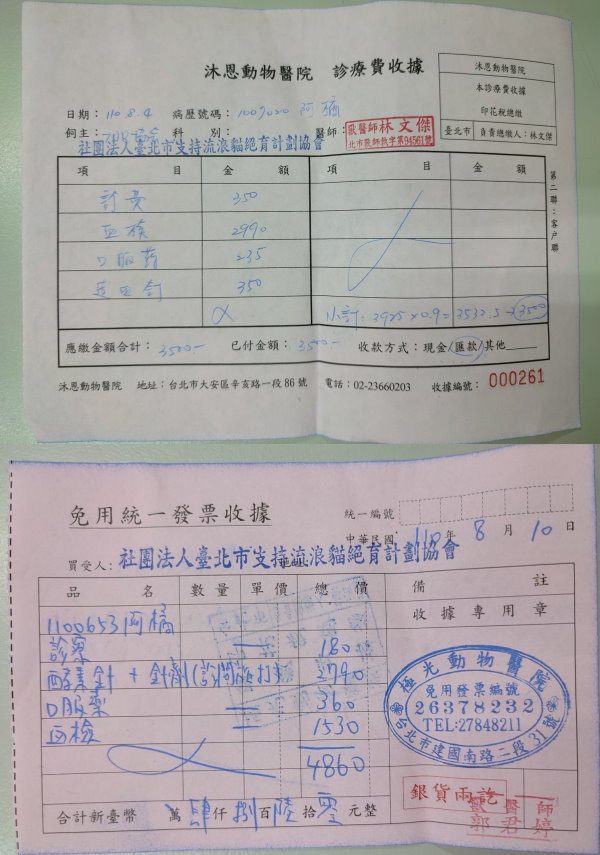 沐恩動物醫院 診療費收據
沐恩動物醫院
本診療費收據
印花稅總繳
臺北市 負責總繳人：林文傑
日期：110.8.4 病歷號碼：1007020 阿橘
飼主： 科別： 醫師：
獸醫師林文傑
北市醫師執字第94561號
社團法人臺北市支持流浪貓絕育計劃協會
項目 金額 項目 金額
診察 350
血檢 2990
口服藥 235
350
小計：3925×0.9=3532.5→3500
應繳金額合計：3500- 已付金額：3500- 收款方式：現金/匯款/其他
第二聯：客戶聯
沐恩動物醫院 地址：台北市大安區辛亥路一段86號 電話：02-23660203 收據編號：000261
免用統一發票收據
統一編號
中華民國110年8月10日
買受人：社團法人臺北市支持流浪貓絕育計劃協會
品名 數量 單價 總價 備註
收據專用章
1100653阿橘
診察 180
酵素針+針劑 2790
口服藥 360
血檢 1530
4860
極光動物醫院
免用發票編號
26378232
TEL:27848211
台北市建國南路二段31號
銀貨兩訖
獸醫師
郭君婷
合計新臺幣 萬肆仟捌百陸拾零元整